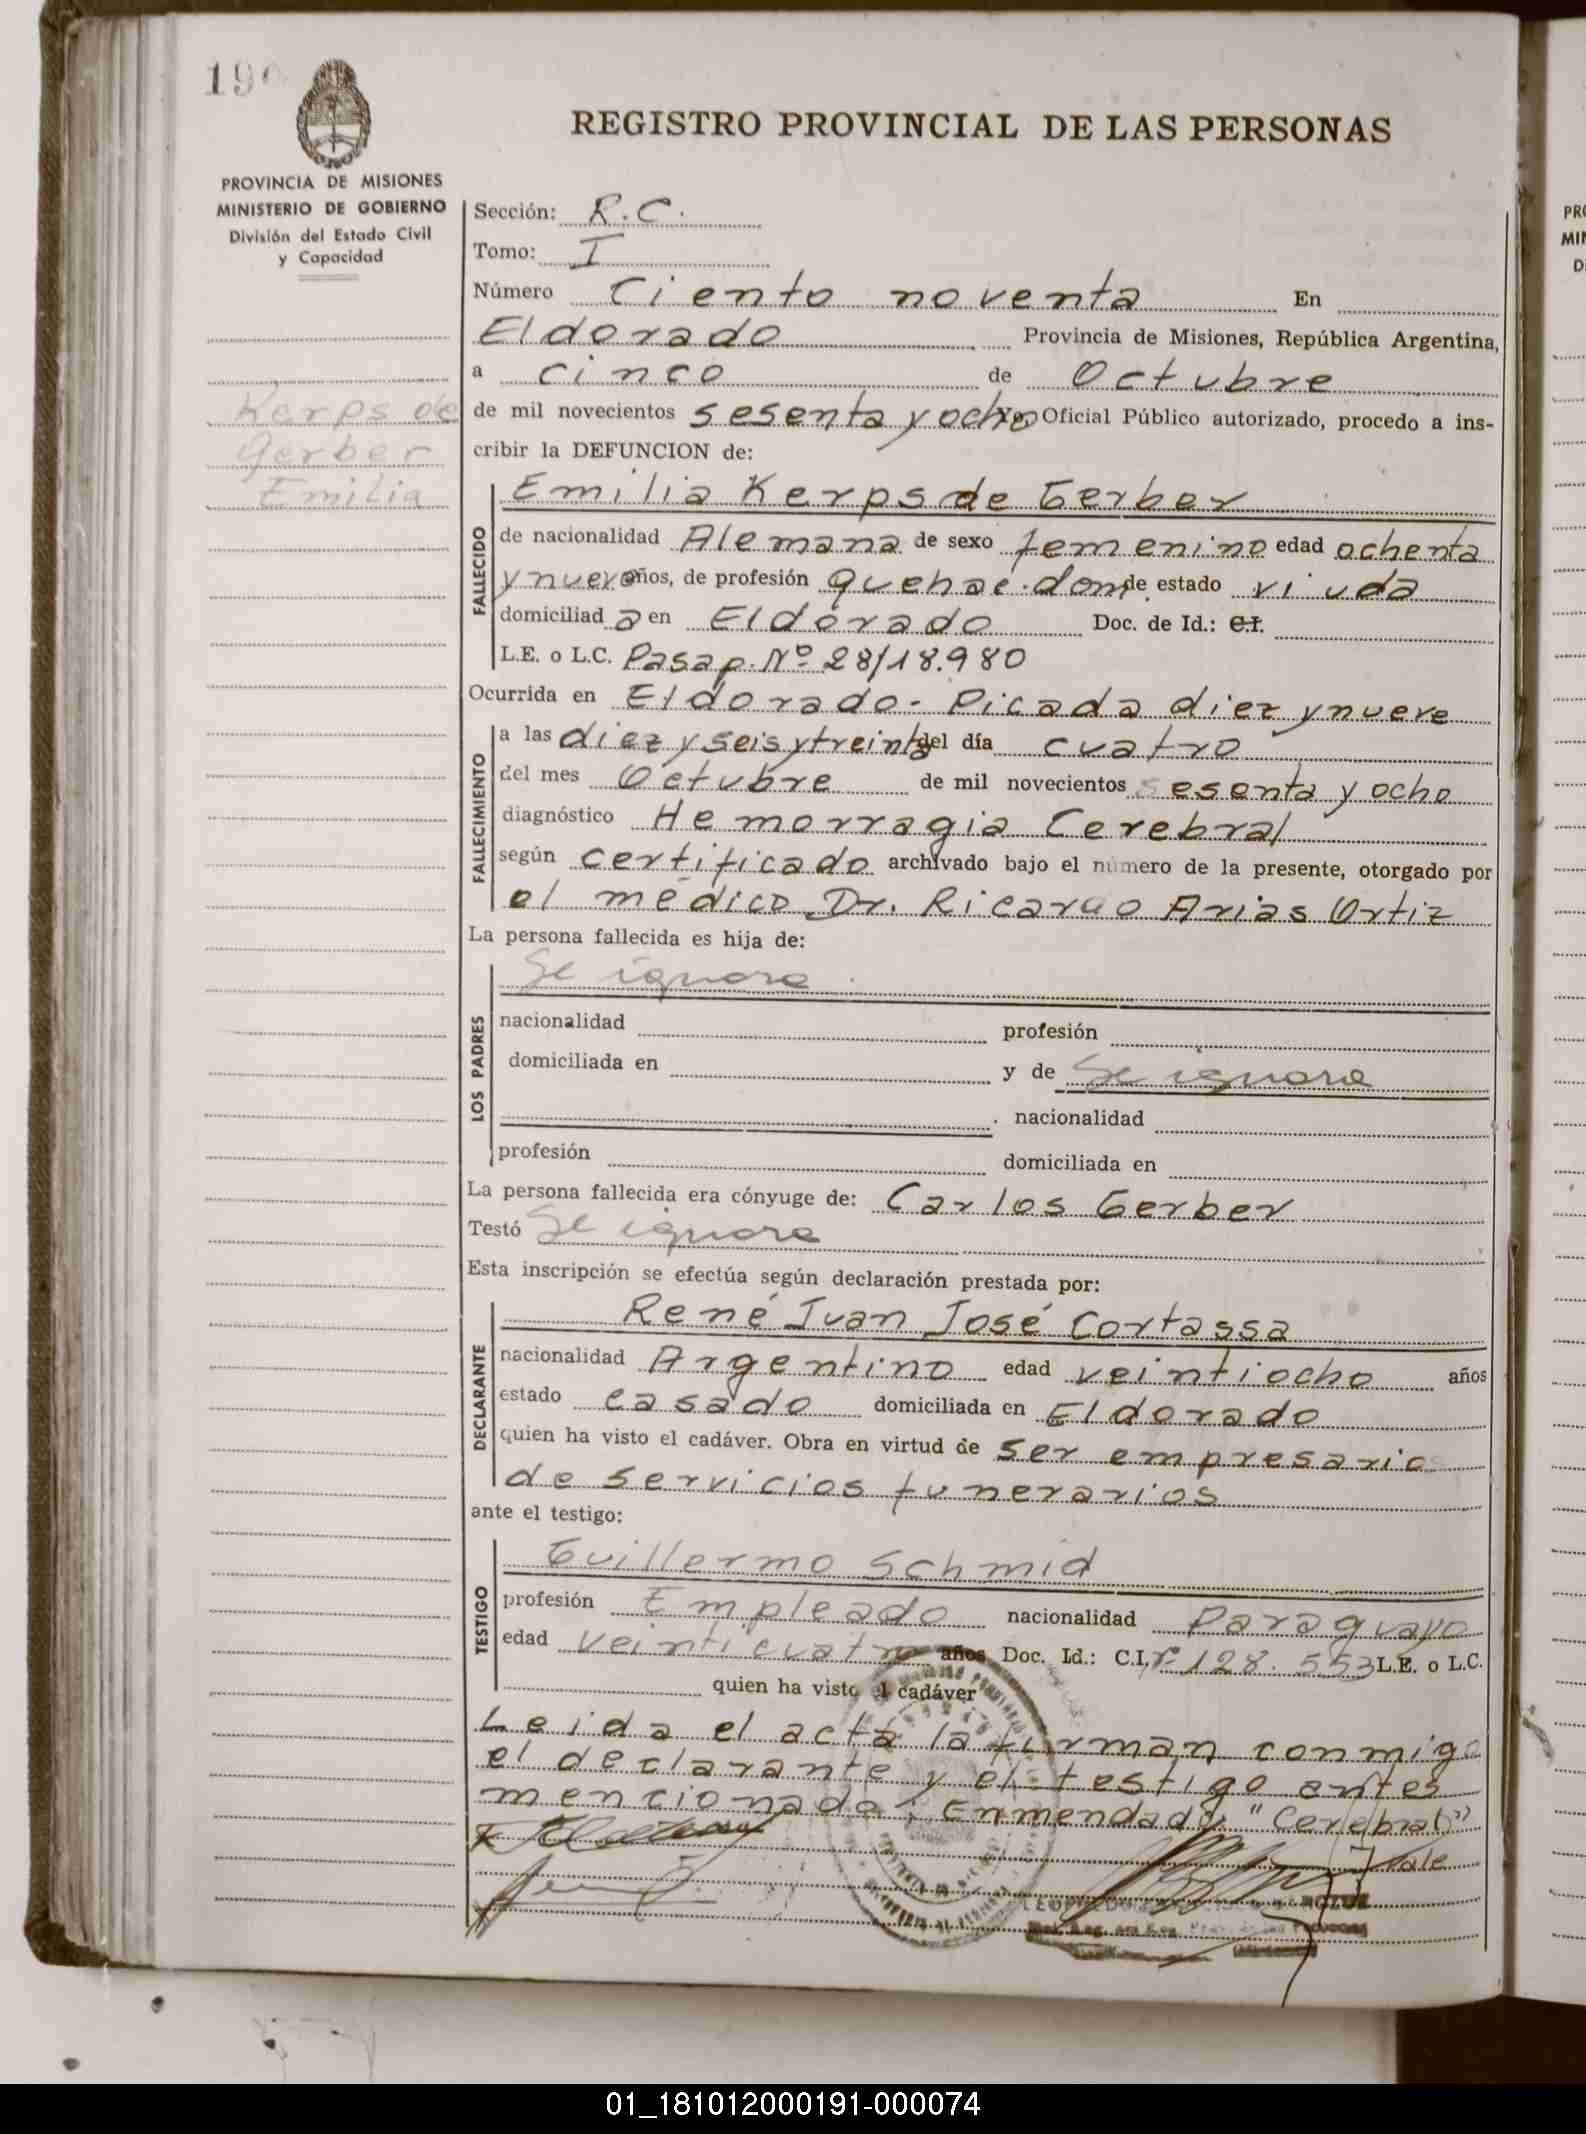 190
REGISTRO PROVINCIAL DE LAS PERSONAS
PROVINCIA DE MISIONES
MINISTERIO DE GOBIERNO
División del Estado Civil
y Capacidad
Kerps de
Gerber
Emilia
Sección: R.C.
Tomo: I
Número Ciento noventa En
Eldorado Provincia de Misiones, República Argentina,
a cinco de Octubre
de mil novecientos sesenta y ocho Yo, Oficial Público autorizado, procedo a ins-
cribir la DEFUNCION de:
FALLECIDO
Emilia Kerps de Gerber
de nacionalidad Alemana de sexo femenino edad ochenta
y nueve años, de profesión quehac. dom. de estado viuda
domiciliad a en Eldorado Doc. de Id.: C.I.
L.E. o L.C. Pasap. Nº 28/18.980
Ocurrida en Eldorado - Picada diez y nueve
FALLECIMIENTO
a las diez y seis y treinta del día cuatro
del mes Octubre de mil novecientos sesenta y ocho
diagnóstico Hemorragia Cerebral
según certificado archivado bajo el número de la presente, otorgado por
el médico Dr. Ricardo Arias Ortiz
La persona fallecida es hija de:
LOS PADRES
Se ignora
nacionalidad profesión
domiciliada en y de Se ignora
nacionalidad
profesión domiciliada en
La persona fallecida era cónyuge de: Carlos Gerber
Testó Se ignora
Esta inscripción se efectúa según declaración prestada por:
DECLARANTE
René Juan José Cortassa
nacionalidad Argentino edad veintiocho años
estado casado domiciliada en Eldorado
quien ha visto el cadáver. Obra en virtud de ser empresario
de servicios funerarios
ante el testigo:
TESTIGO
Guillermo Schmid
profesión Empleado nacionalidad Paraguayo
edad veinticuatro años Doc. Id.: C.I. Nº 128.553 L.E. o L.C.
quien ha visto el cadáver
Leida el acta la firman conmigo
el declarante y el testigo antes
mencionado, Enmendado: "Cerebral"
Vale
01_181012000191-000074